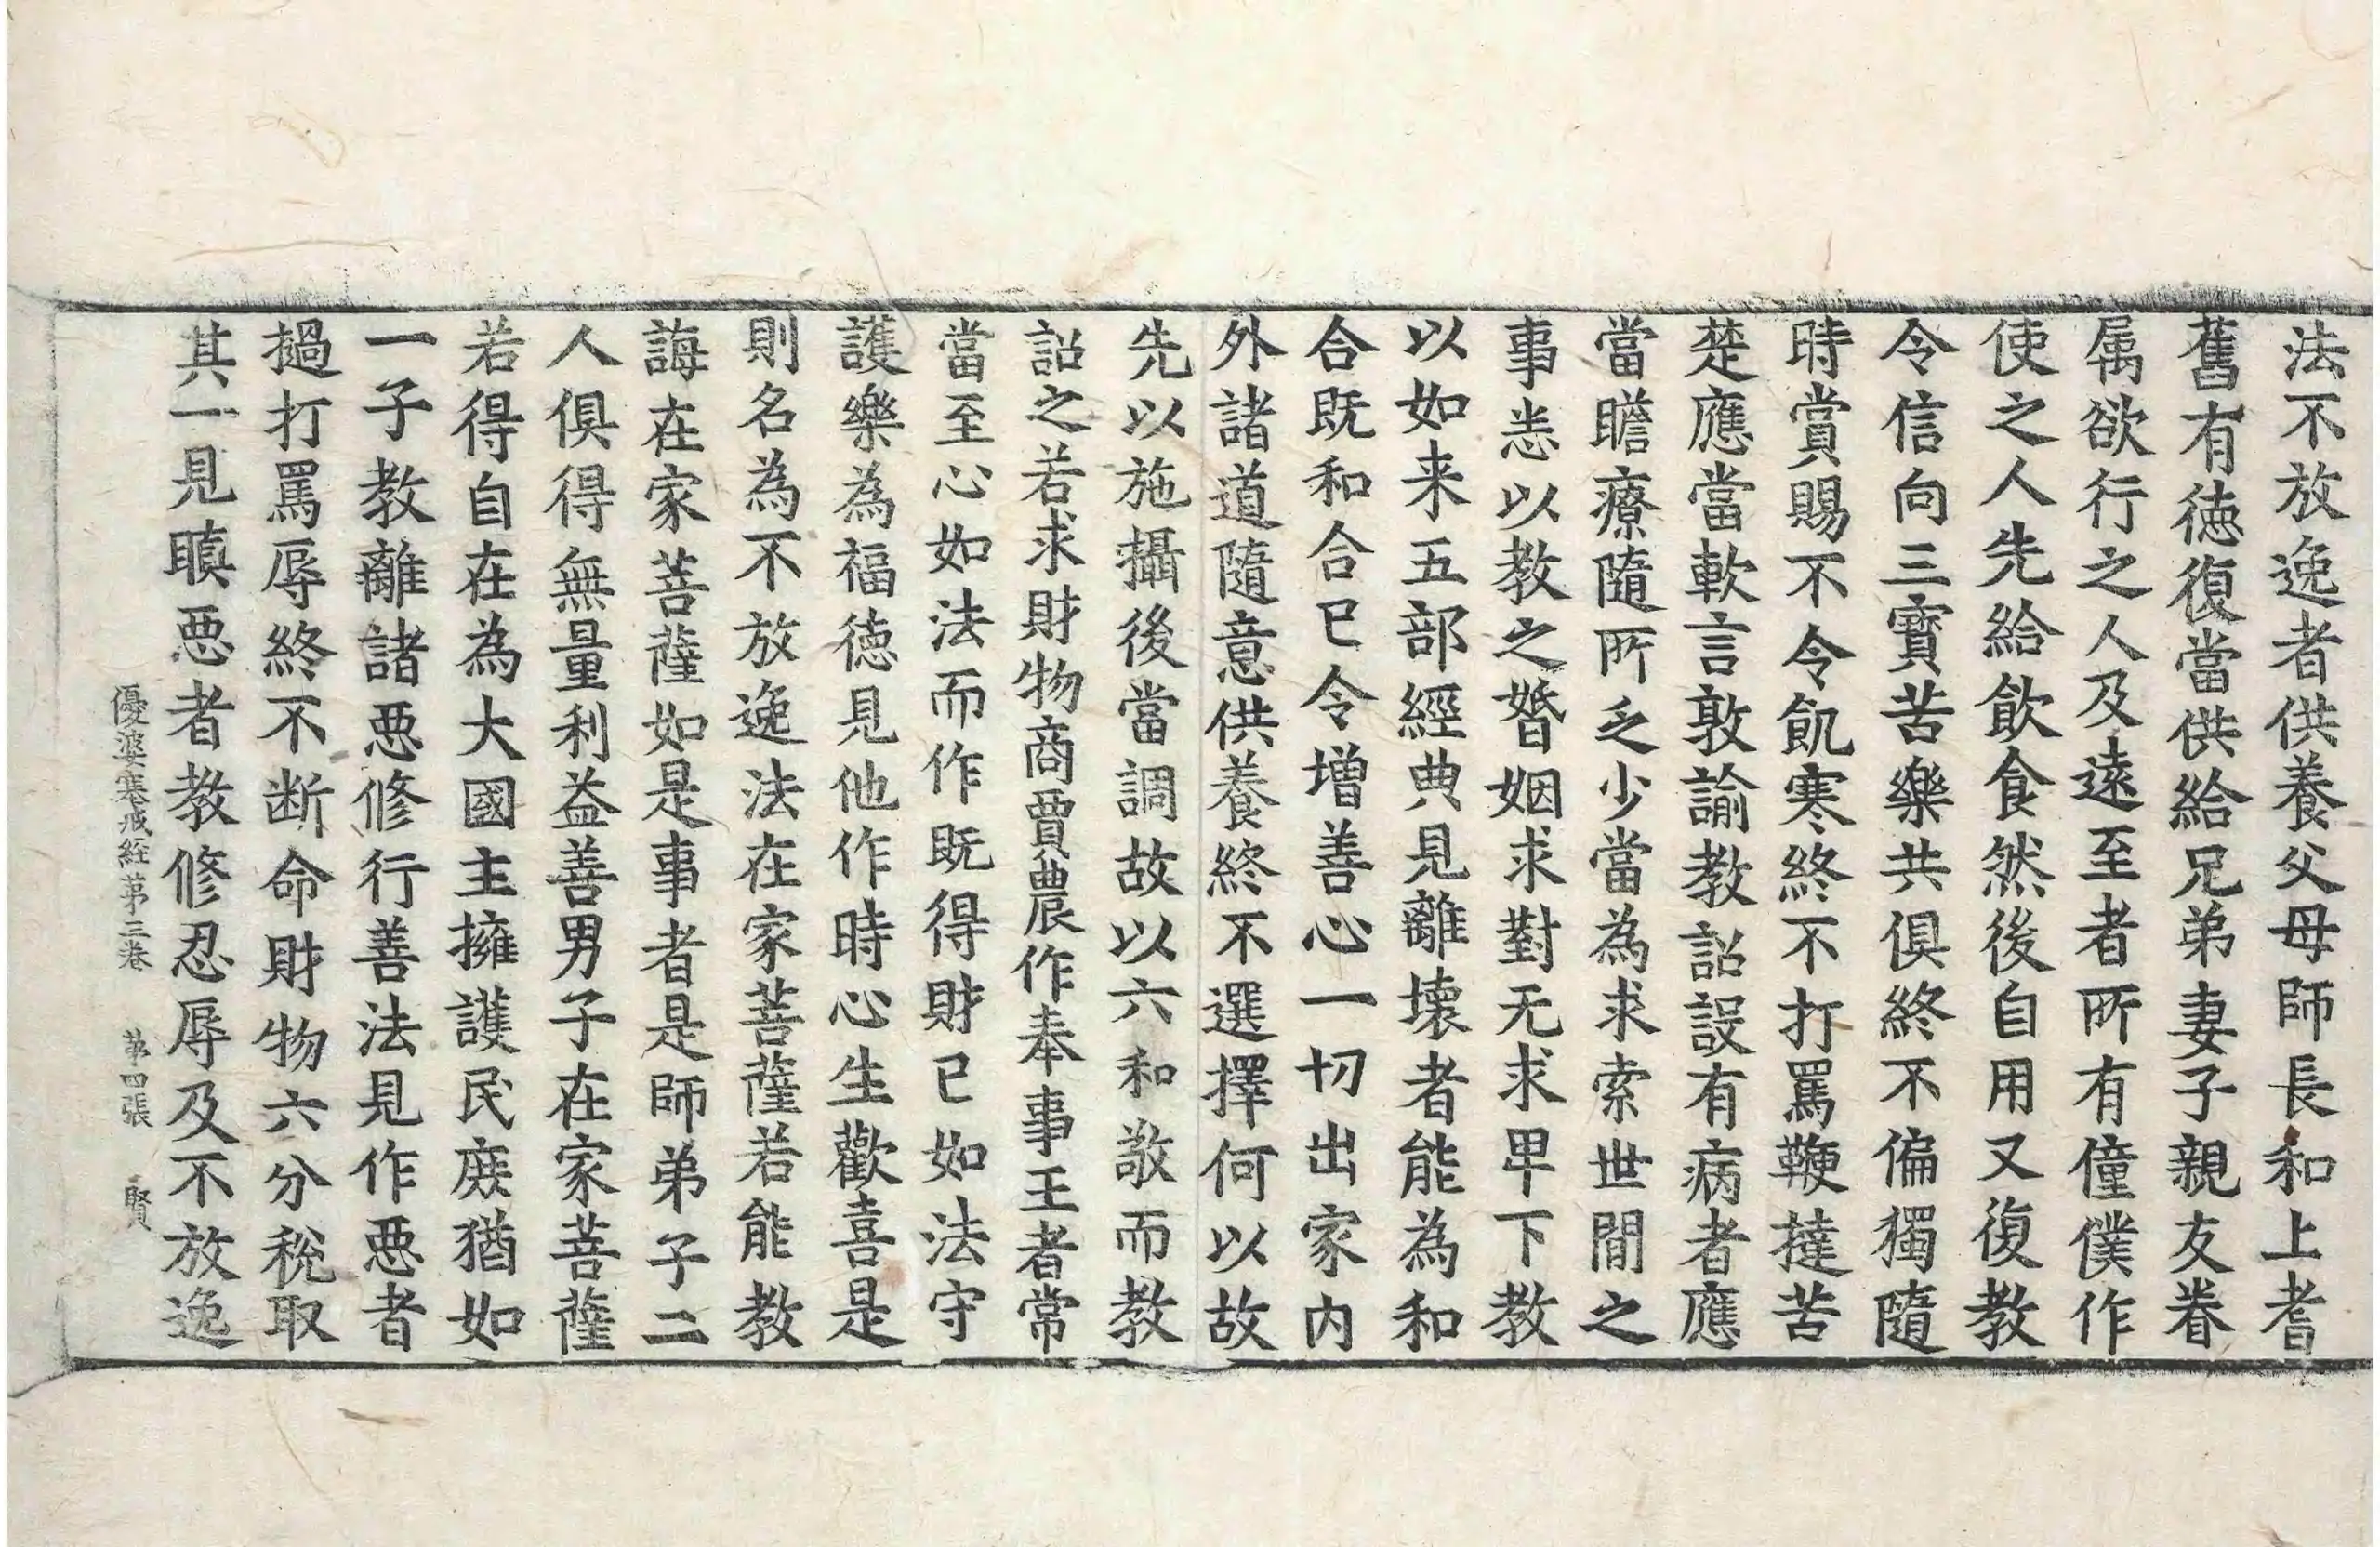 法不放逸者供養父母師長和上耆
舊有德復當供給兄弟妻子親友眷
属欲行之人及遠至者所有僮僕作
使之人先給飲食然後自用又復教
令信向三寶苦樂共俱終不偏獨隨
時賞賜不令飢寒終不打罵鞭撻苦
楚應當軟言敦諭教詔設有病者應
當瞻療隨所乏少當為求索世間之
事悉以教之婚姻求對无求卑下教
以如来五部經典見離壞者能為和
合既和合已令增善心一切出家内
外諸道隨意供養終不選擇何以故
先以施攝後當調故以六和敬而教
詔之若求財物商賈農作奉事王者常
當至心如法而作既得財已如法守
護樂為福德見他作時心生歡喜是
則名為不放逸法在家菩薩若能教
誨在家菩薩如是事者是師弟子二
人俱得無量利益善男子在家菩薩
若得自在為大國主擁護民庻猶如
一子教離諸惡修行善法見作惡者
撾打罵辱終不断命財物六分稅取
其一見瞋惡者教修忍辱及不放逸
優婆塞戒經苐三卷　苐四張　賢